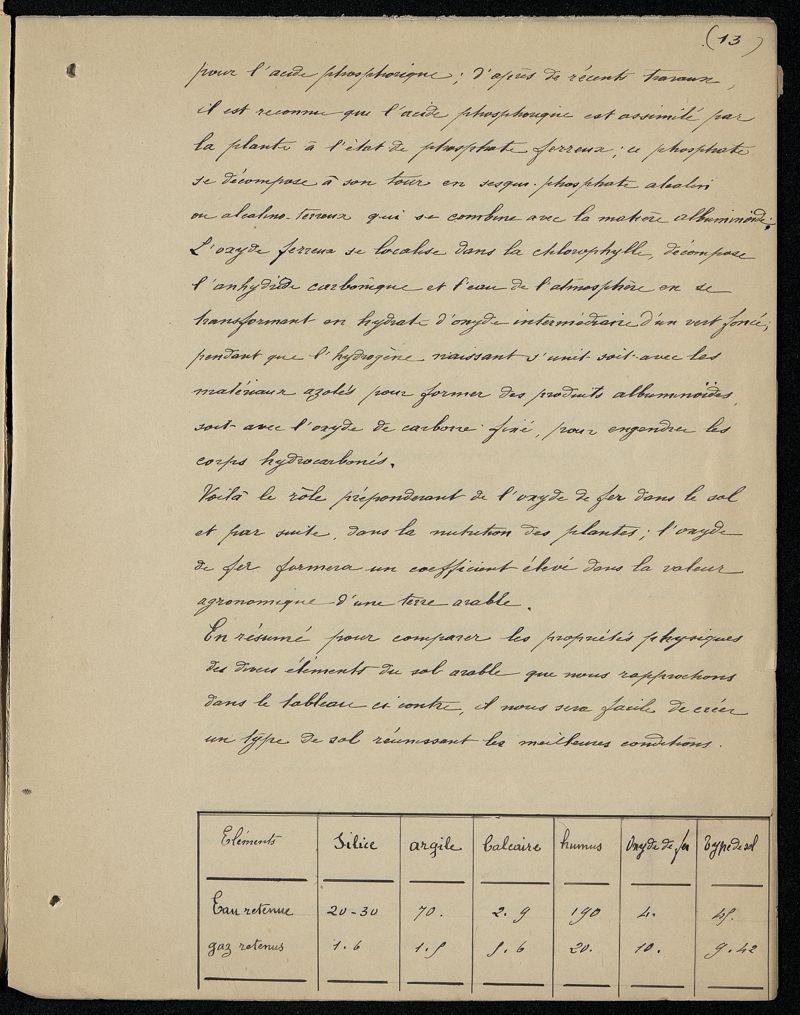 (13)
pour l'acide phosphorique ; d'après de récents travaux,
il est reconnu que l'acide phosphorique est assimilé par
la plante à l'état de phosphate ferreux ; ce phosphate
se décompose à son tour en sesqui-phosphate alcalin
ou alcalino-terreux qui se combine avec la matière albuminoïde.
L'oxyde ferreux se localise dans la chlorophylle, décompose
l'anhydride carbonique et l'eau de l'atmosphère en se
transformant en hydrate d'oxyde intermédiaire d'un vert foncé ;
pendant que l'hydrogène naissant s'unit soit avec les
matériaux azotés pour former des produits albuminoïdes,
soit avec l'oxyde de carbone fixé, pour engendrer les
corps hydrocarbonés.
Voilà le rôle prépondérant de l'oxyde de fer dans le sol
et par suite, dans la nutrition des plantes ; l'oxyde
de fer formera un coefficient élevé dans la valeur
agronomique d'une terre arable.
En résumé pour comparer les propriétés physiques
des divers éléments du sol arable que nous rapprochons
dans le tableau ci contre, il nous sera facile de créer
un type de sol réunissant les meilleures conditions.
Eléments Silice argile Calcaire humus Oxyde de fer Type de sol
Eau retenue 20-30 70. 2.9 190 4. 45.
gaz retenus 1.6 1.5 5.6 20. 10. 9.42